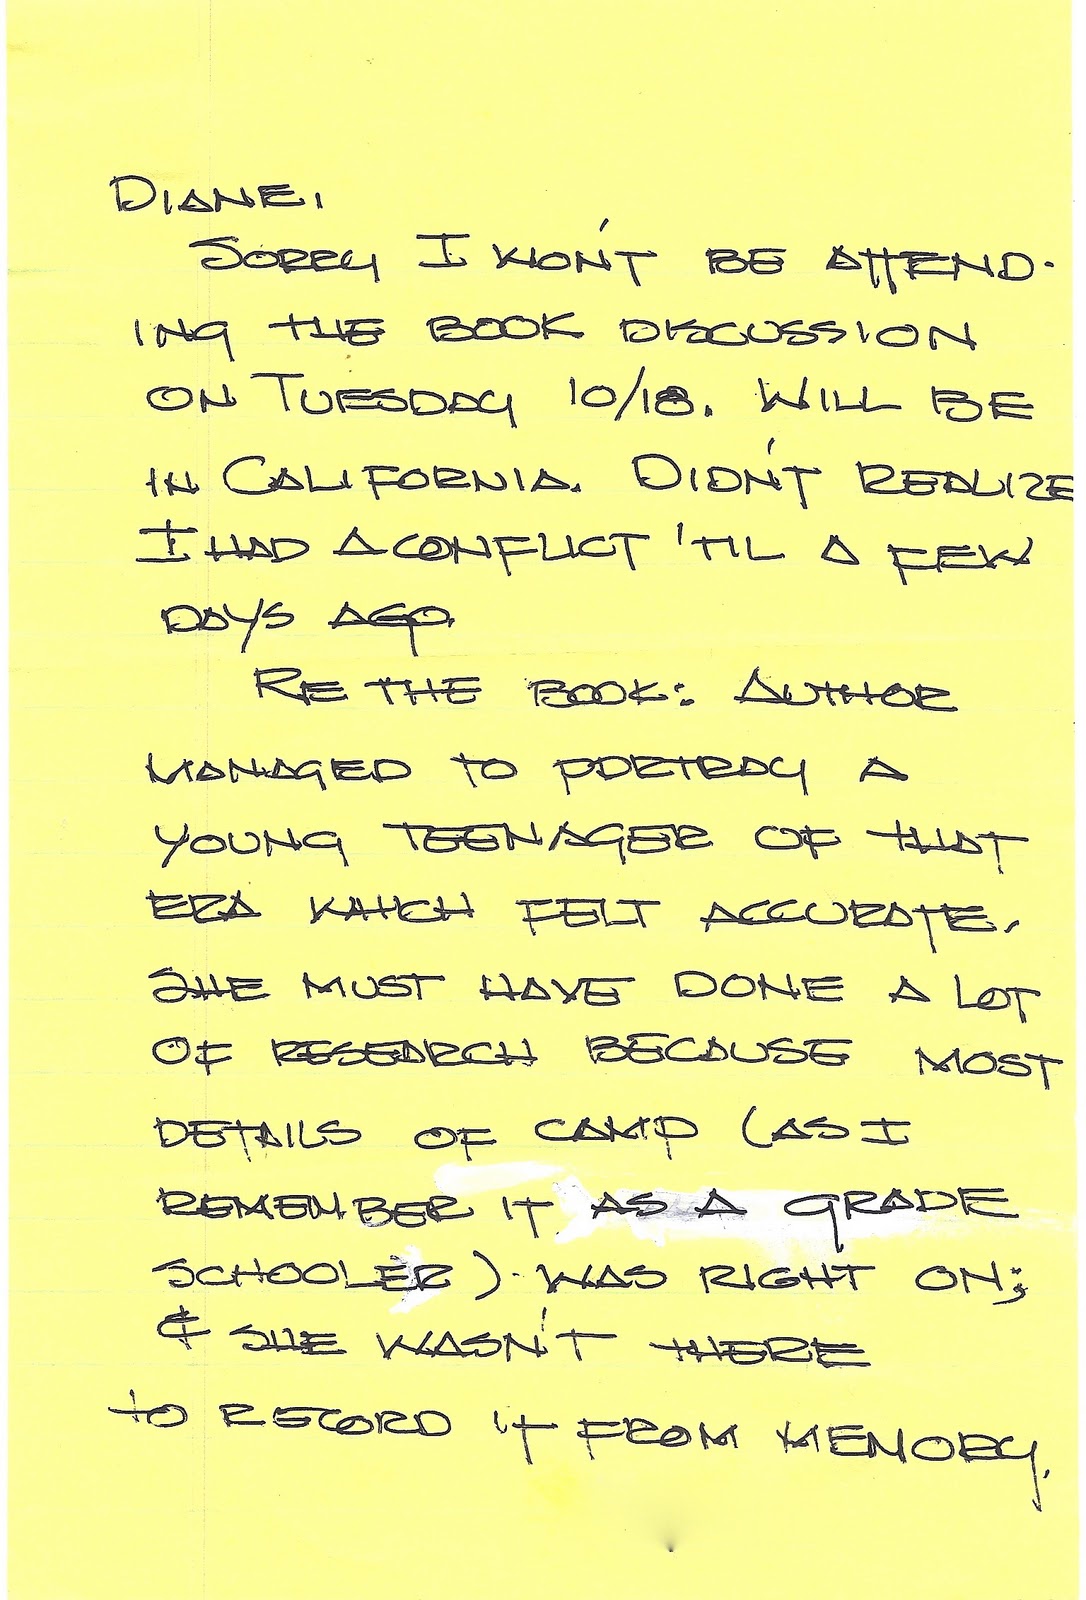 DIANE,
SORRY I WON'T BE ATTEND-
ING THE BOOK DISCUSSION
ON TUESDAY 10/18. WILL BE
IN CALIFORNIA. DIDN'T REALIZE
I HAD A CONFLICT 'TIL A FEW
DAYS AGO.
RE THE BOOK: AUTHOR
MANAGED TO PORTRAY A
YOUNG TEENAGER OF THAT
ERA WHICH FELT ACCURATE.
SHE MUST HAVE DONE A LOT
OF RESEARCH BECAUSE MOST
DETAILS OF CAMP (AS I
REMEMBER IT AS A GRADE
SCHOOLER) WAS RIGHT ON;
& SHE WASN'T THERE
TO RECORD IT FROM MEMORY.